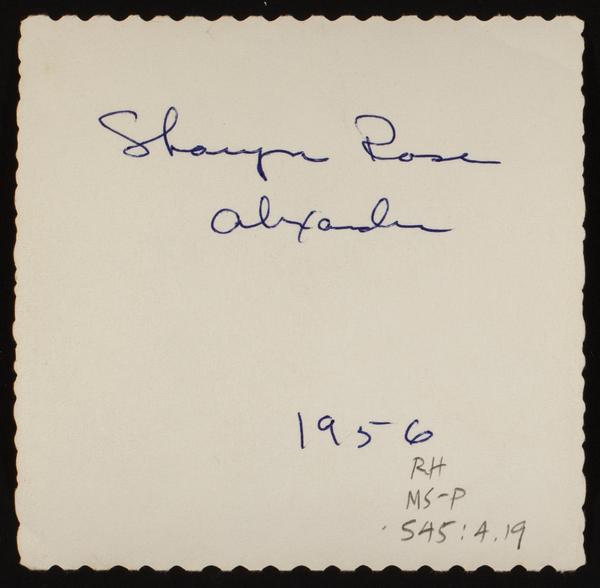 Sharyn Rose
Alexander
1956
RH
MS-P
545:4.19